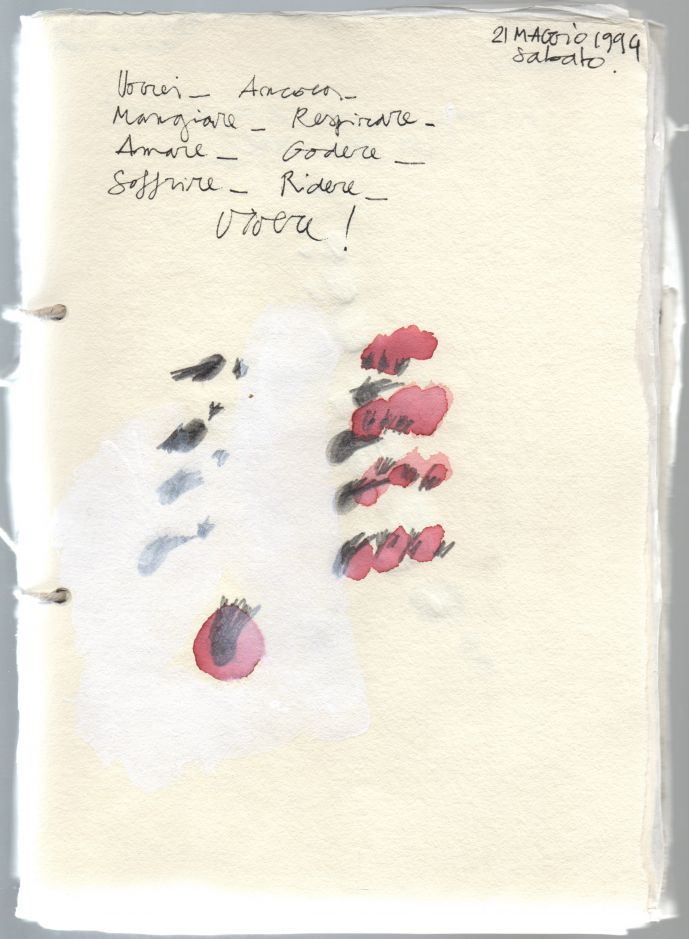 21 MAGGIO 1994
Sabato.
Vorrei_ Ancora_
Mangiare_ Respirare_
Amare_ Godere_
Soffrire_ Ridere_
Vivere!